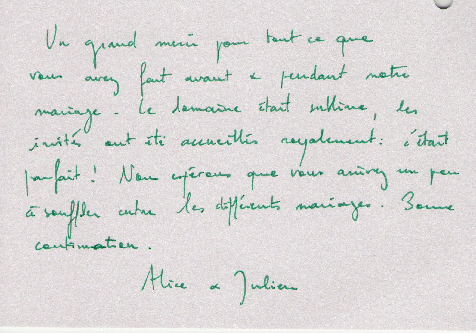 Un grand merci pour tout ce que
vous avez fait avant & pendant notre
mariage. Le domaine était sublime, les
invités ont été accueillis royalement : c'était
parfait ! Nous espérons que vous arrivez un peu
à souffler entre les différents mariages. Bonne
continuation.
Alice & Julien